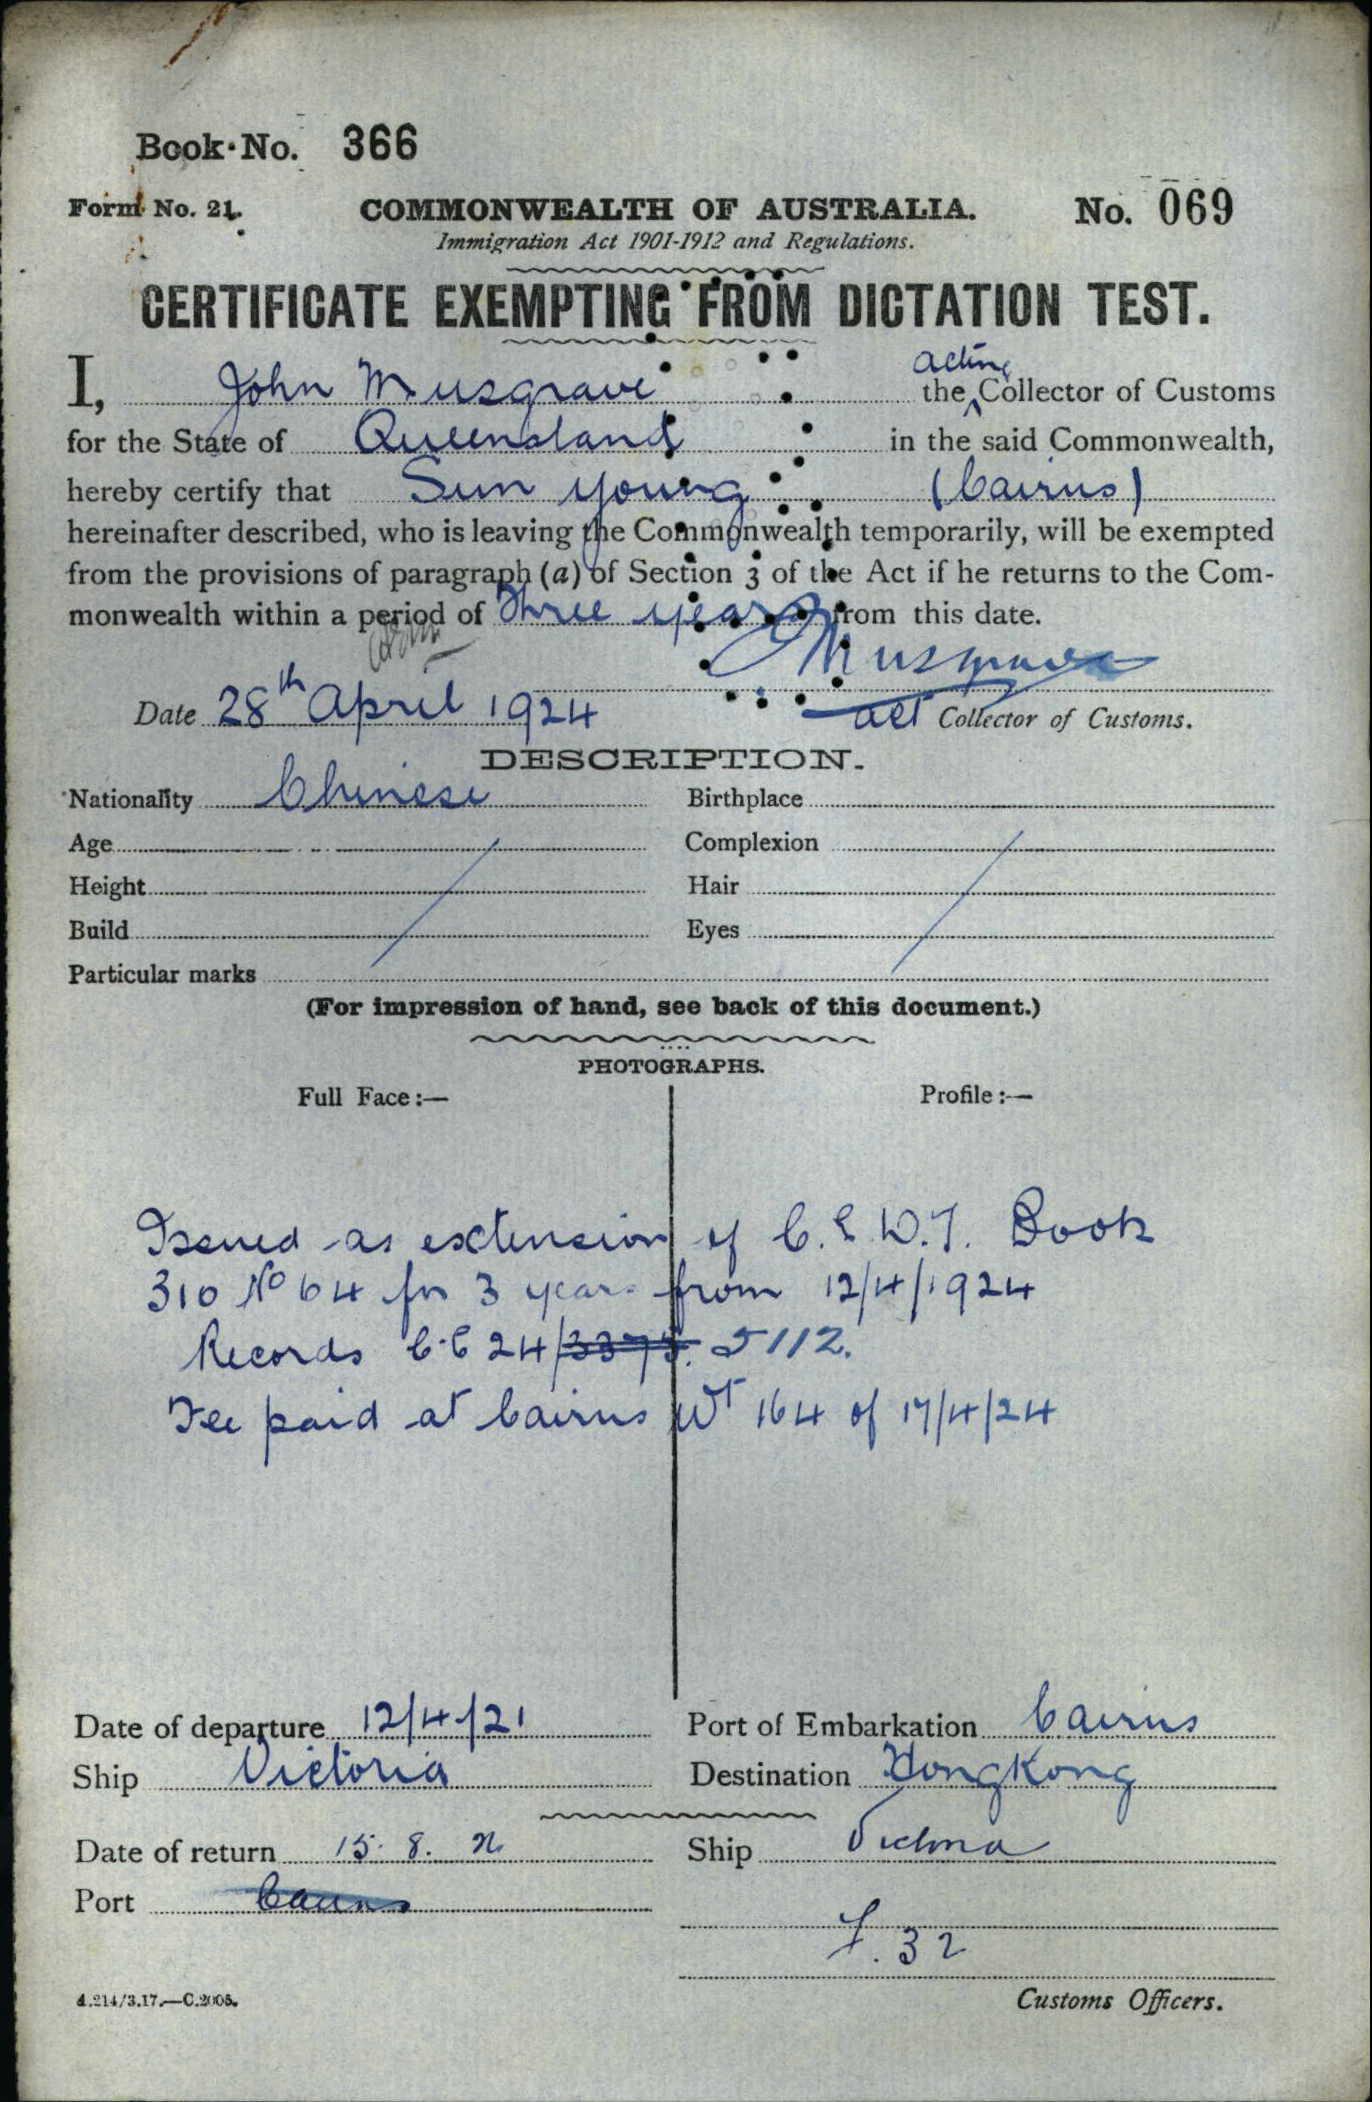 Book No. 366
Form No. 21.
COMMONWEALTH OF AUSTRALIA.
No. 069
Immigration Act 1901-1912 and Regulations.
CERTIFICATE EXEMPTING FROM DICTATION TEST.
acting
I, John Musgrave the Collector of Customs
for the State of Queensland in the said Commonwealth,
hereby certify that Sun Young (Cairns)
hereinafter described, who is leaving the Commonwealth temporarily, will be exempted
from the provisions of paragraph (a) of Section 3 of the Act if he returns to the Com-
monwealth within a period of Three years from this date.
Musgrave
Date 28th April 1924
act Collector of Customs.
DESCRIPTION.
Nationality Chinese Birthplace
Age Complexion
Height Hair
Build Eyes
Particular marks
(For impression of hand, see back of this document.)
PHOTOGRAPHS.
Full Face:— Profile:—
Issued as extension of C.E.D.T. Book
310 No 64 for 3 years from 12/4/1924
Records C.C 24/3375. 5112.
Fee paid at Cairns 164 of 17/4/24
Date of departure 12/4/21 Port of Embarkation Cairns
Ship Victoria Destination HongKong
Date of return 15. 8. Ship Victoria
Port Cairns
F. 32
A.214/3.17.—C.2005.
Customs Officers.